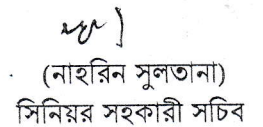 (নাহরিন সুলতানা)
সিনিয়র সহকারী সচিব